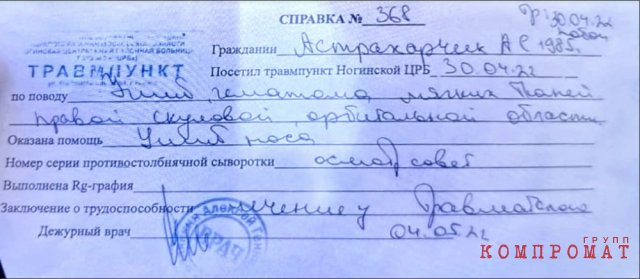 СПРАВКА № 368
30.04.22
ГИНСКАЯ ЦЕНТРАЛЬНАЯ РАЙОННАЯ БОЛЬНИЦ
ТРАВМПУНКТ
Гражданин Астрахарчик А С 1985г.
Посетил травмпункт Ногинской ЦРБ 30.04.22
по поводу Ушиб, гематома мягких тканей
правой скуловой, орбитальной области.
Оказана помощь Ушиб носа
Номер серии противостолбнячной сыворотки осмотр совет
Выполнена Rg-графия
Заключение о трудоспособности лечение у
Дежурный врач 04.05.22
ВРАЧ
ГРУПП
КОМПРОМАТ